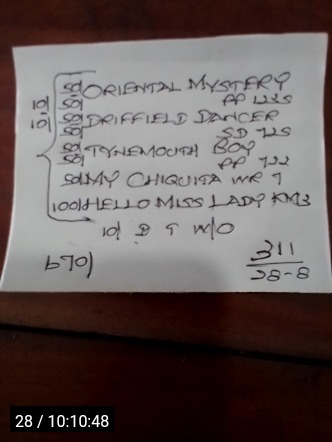 50/ ORIENTAL MYSTERY
50/ PP 1225
10/ 50/ DRIFFIELD DANCER
10/ 50/ SD 725
50/ TYNEMOUTH BOY
50/ PP 722
50/ MY CHIQUITA WR 7
100/ HELLO MISS LADY KM3
10/ D T W/O
670/ 311
28-8
28 / 10:10:48